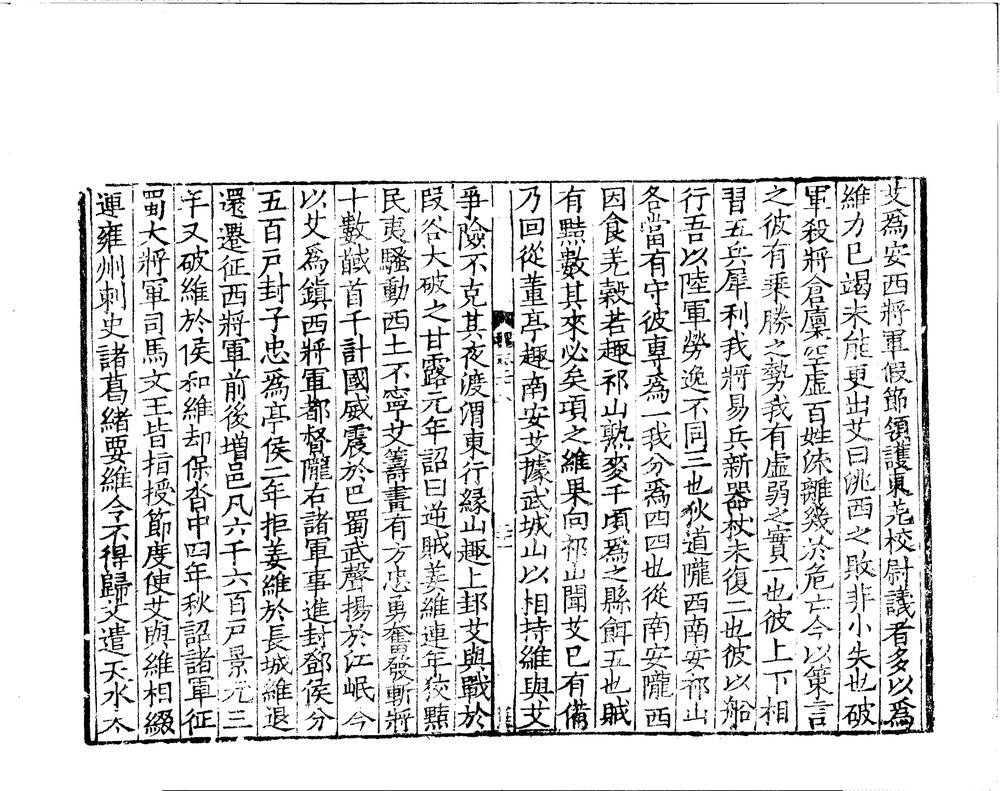 艾爲安西將軍假節領護東羌校尉議者多以爲
維力已竭未能更出艾曰洮西之敗非小失也破
軍殺將倉廩空虚百姓流離幾於危亡今以策言
之彼有乗勝之勢我有虚弱之實一也彼上下相
習五兵犀利我將易兵新器杖未復二也彼以船
行吾以陸軍勞逸不同三也狄道隴西南安祁山
各當有守彼專爲一我分爲四四也從南安隴西
因食羌穀若趣祁山熟麥千頃爲之縣餌五也賊
有黠數其來必矣頃之維果向祁山聞艾已有備
乃回從董亭趣南安艾據武城山以相持維與艾
爭險不克其夜渡渭東行縁山趣上邽艾與戰於
段谷大破之甘露元年詔曰逆賊姜維連年狡黠
民夷騷動西土不寧艾籌畫有方忠勇奮發斬將
十數馘首千計國威震於巴蜀武聲揚於江岷今
以艾爲鎮西將軍都督隴右諸軍事進封鄧侯分
五百戸封子忠爲亭侯二年拒姜維於長城維退
還遷征西將軍前後增邑凡六千六百戸景元三
年又破維於侯和維却保沓中四年秋詔諸軍征
蜀大將軍司馬文王皆指授節度使艾與維相綴
連雍州刺史諸葛緒要維令不得歸艾遣天水太